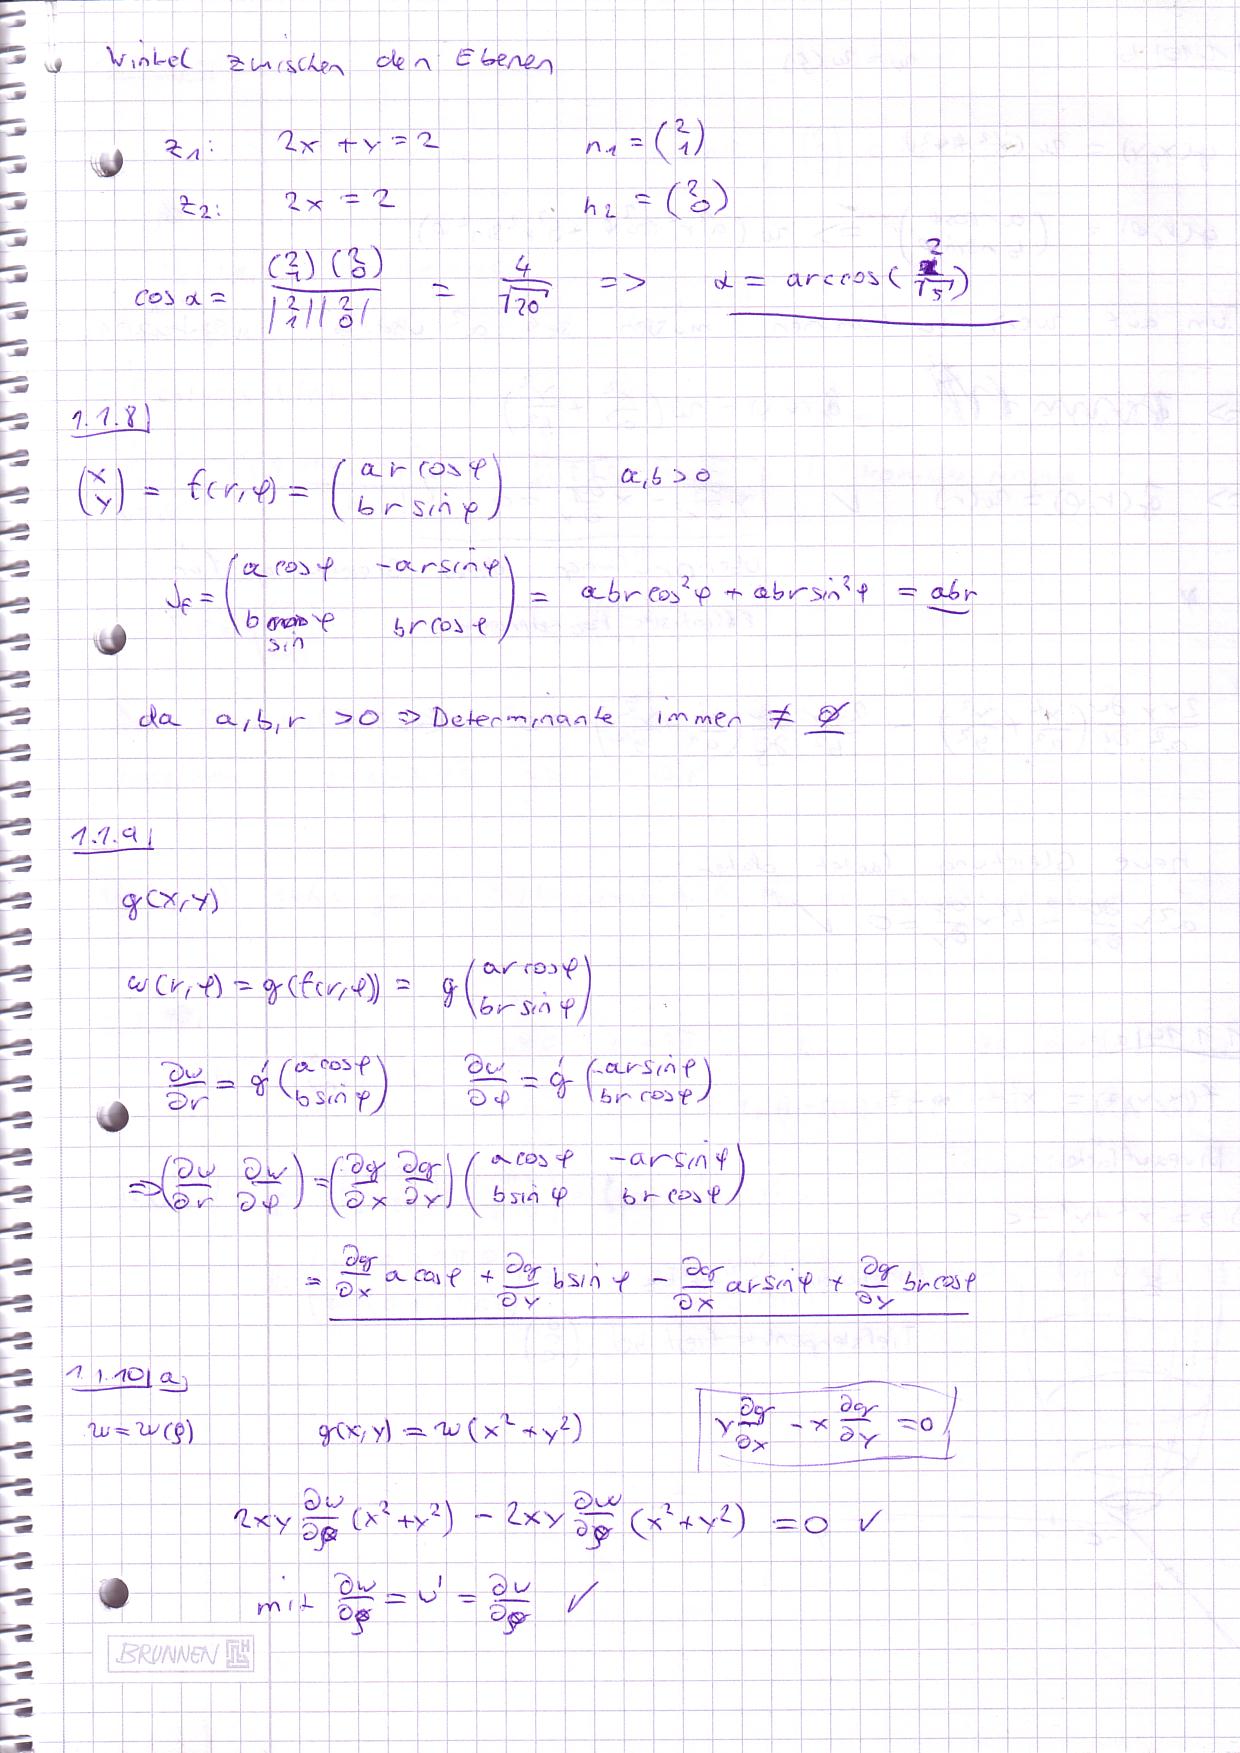 Winkel zwischen den Ebenen
z₁: 2x + y = 2 n₁ = (2 1)
z₂: 2x = 2 n₂ = (2 0)
cos α = (2 1)(2 0) / |2 1||2 0| = 4/√20 => α = arccos(2/√5)
1.1.8)
(x y) = f(r,φ) = (a r cosφ b r sinφ) a,b > 0
J_f = (a cosφ -a r sinφ b sin φ b r cosφ) = abr cos²φ + abr sin²φ = abr
da a,b,r > 0 ⇒ Determinante immer ≠ 0
1.1.9)
g(x,y)
w(r,φ) = g(f(r,φ)) = g(ar cosφ br sinφ)
∂w/∂r = g'(a cosφ b sinφ) ∂w/∂φ = g'(-ar sinφ br cosφ)
⇒ (∂w/∂r ∂w/∂φ) = (∂g/∂x ∂g/∂y)(a cosφ -ar sinφ b sinφ br cosφ)
= ∂g/∂x a cosφ + ∂g/∂y b sinφ - ∂g/∂x ar sinφ + ∂g/∂y br cosφ
1.1.10) a)
w = w(ρ) g(x,y) = w(x² + y²) y ∂g/∂x - x ∂g/∂y = 0
2xy ∂w/∂ρ (x² + y²) - 2xy ∂w/∂ρ (x² + y²) = 0 ✓
mit ∂w/∂ρ = w' = ∂w/∂ρ ✓
BRUNNEN